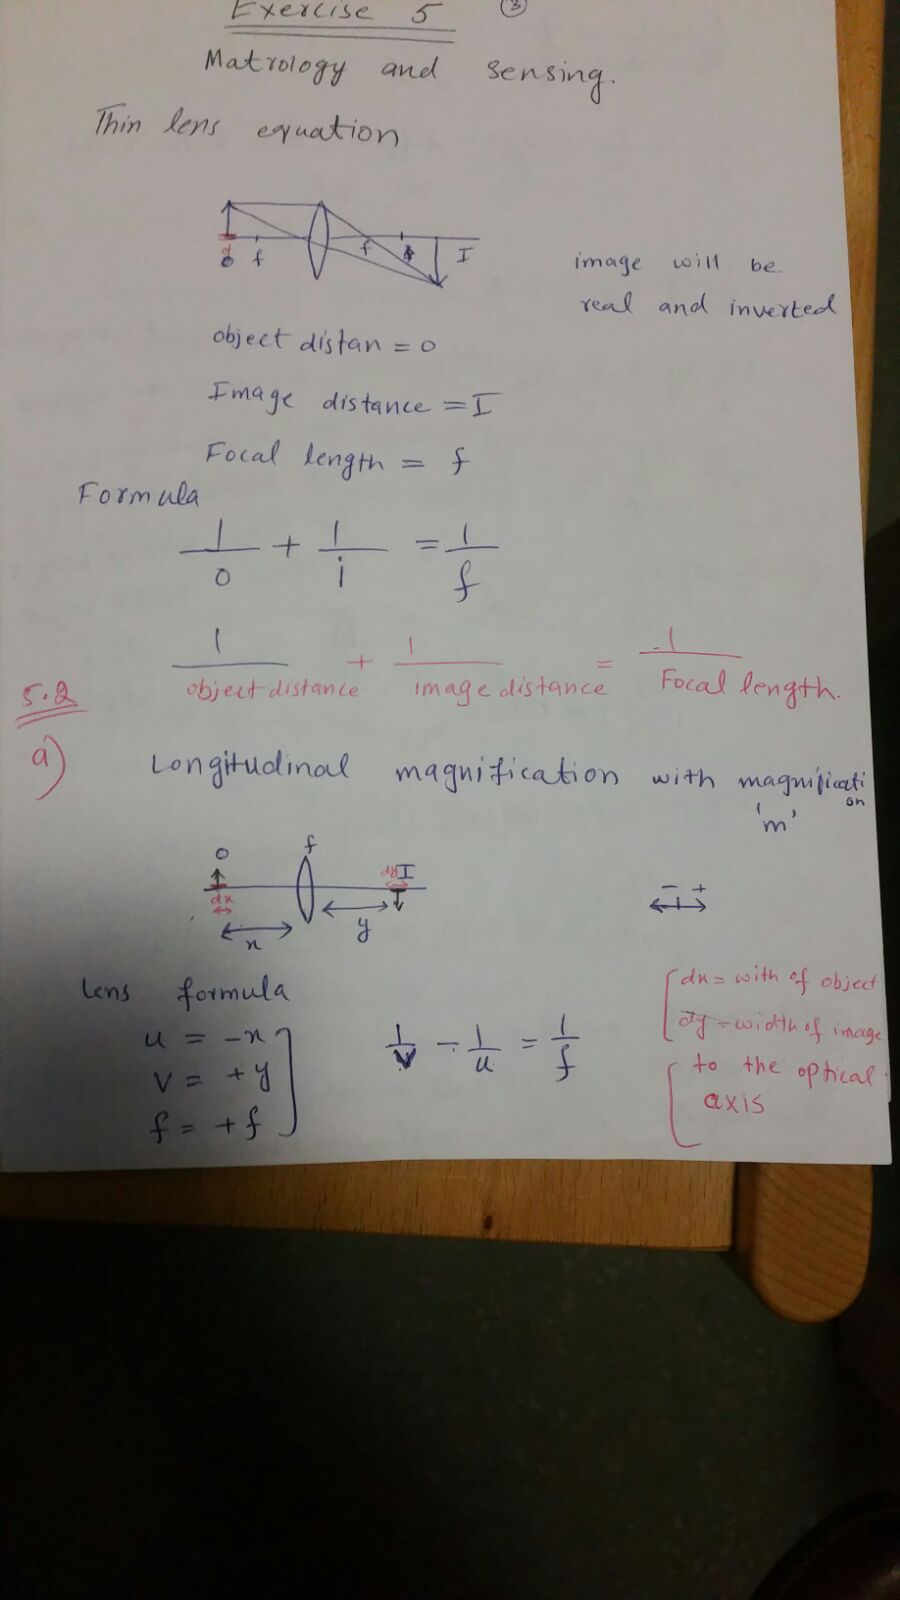 Exercise 5
3
Matrology and sensing.
Thin lens equation
d
o f f I
image will be
real and inverted
object distan = o
Image distance = I
Focal length = f
Formula
1/o + 1/i = 1/f
1/object distance + 1/image distance = 1/Focal length.
5.2
a) Longitudinal magnification with magnification
'm'
O f dy I
dx
x y
- +
Lens formula
u = -x
v = +y
f = +f
1/v - 1/u = 1/f
dx = with of object
dy - width of image
to the optical
axis